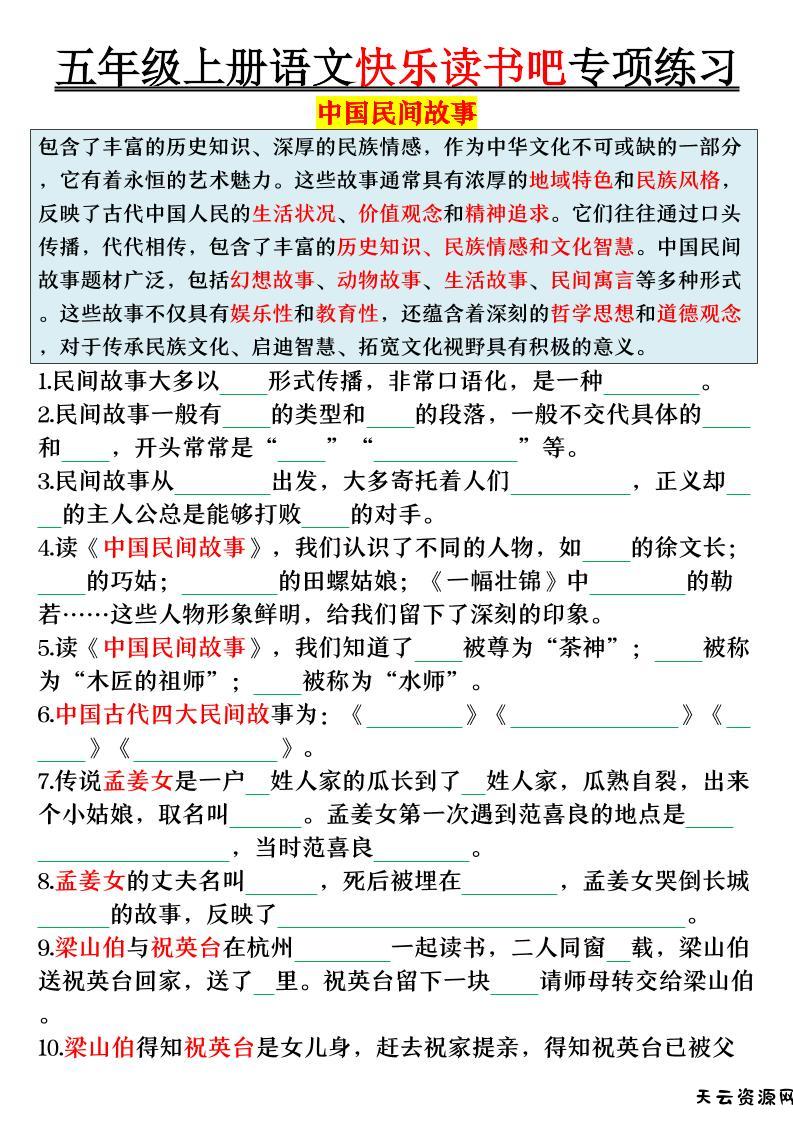 五年级上册语文快乐读书吧专项练习
中国民间故事
包含了丰富的历史知识、深厚的民族情感，作为中华文化不可或缺的一部分
，它有着永恒的艺术魅力。这些故事通常具有浓厚的地域特色和民族风格，
反映了古代中国人民的生活状况、价值观念和精神追求。它们往往通过口头
传播，代代相传，包含了丰富的历史知识、民族情感和文化智慧。中国民间
故事题材广泛，包括幻想故事、动物故事、生活故事、民间寓言等多种形式
。这些故事不仅具有娱乐性和教育性，还蕴含着深刻的哲学思想和道德观念
，对于传承民族文化、启迪智慧、拓宽文化视野具有积极的意义。
1.民间故事大多以____形式传播，非常口语化，是一种________。
2.民间故事一般有____的类型和____的段落，一般不交代具体的____
和____，开头常常是“____”“____________”等。
3.民间故事从________出发，大多寄托着人们__________，正义却__
__的主人公总是能够打败____的对手。
4.读《中国民间故事》，我们认识了不同的人物，如____的徐文长；
____的巧姑；________的田螺姑娘；《一幅壮锦》中________的勒
若……这些人物形象鲜明，给我们留下了深刻的印象。
5.读《中国民间故事》，我们知道了____被尊为“茶神”；____被称
为“木匠的祖师”；____被称为“水师”。
6.中国古代四大民间故事为：《________》《______________》《__
____》《____________》。
7.传说孟姜女是一户__姓人家的瓜长到了__姓人家，瓜熟自裂，出来
个小姑娘，取名叫______。孟姜女第一次遇到范喜良的地点是____
________________，当时范喜良________。
8.孟姜女的丈夫名叫______，死后被埋在________，孟姜女哭倒长城
______的故事，反映了__________________________________。
9.梁山伯与祝英台在杭州________一起读书，二人同窗__载，梁山伯
送祝英台回家，送了__里。祝英台留下一块____请师母转交给梁山伯
。
10.梁山伯得知祝英台是女儿身，赶去祝家提亲，得知祝英台已被父
天云资源网